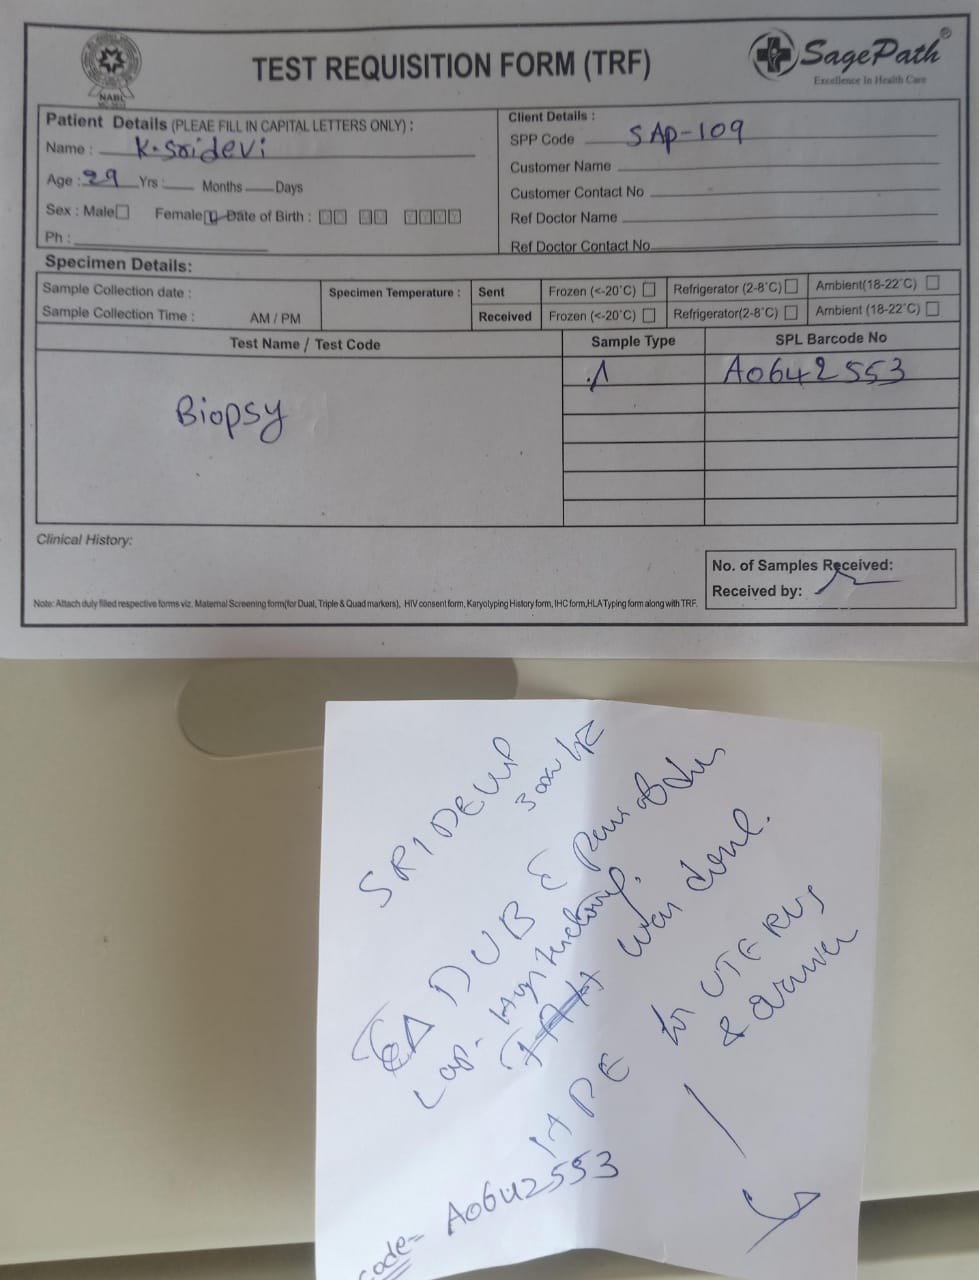 NABL
TEST REQUISITION FORM (TRF)
SagePath®
Excellence In Health Care
Patient Details (PLEAE FILL IN CAPITAL LETTERS ONLY) :
Name : K. Sridevi
Age : 29 Yrs : Months Days
Sex : Male Female Date of Birth :
Ph :
Client Details :
SPP Code SAp-109
Customer Name
Customer Contact No
Ref Doctor Name
Ref Doctor Contact No
Specimen Details:
Sample Collection date :
Sample Collection Time : AM / PM
Specimen Temperature :
Sent Frozen (<-20°C) Refrigerator (2-8°C) Ambient(18-22°C)
Received Frozen (<-20°C) Refrigerator(2-8°C) Ambient (18-22°C)
Test Name / Test Code Sample Type SPL Barcode No
A0642553
Biopsy
Clinical History:
No. of Samples Received:
Received by:
Note: Attach duly filled respective forms viz. Maternal Screening form(for Dual, Triple & Quad markers), HIV consent form, Karyotyping History form, IHC form,HLA Typing form along with TRF.
SRIDEVI
DUB
Lap-
was done.
HPE for UTERUS
&
code- A0642553